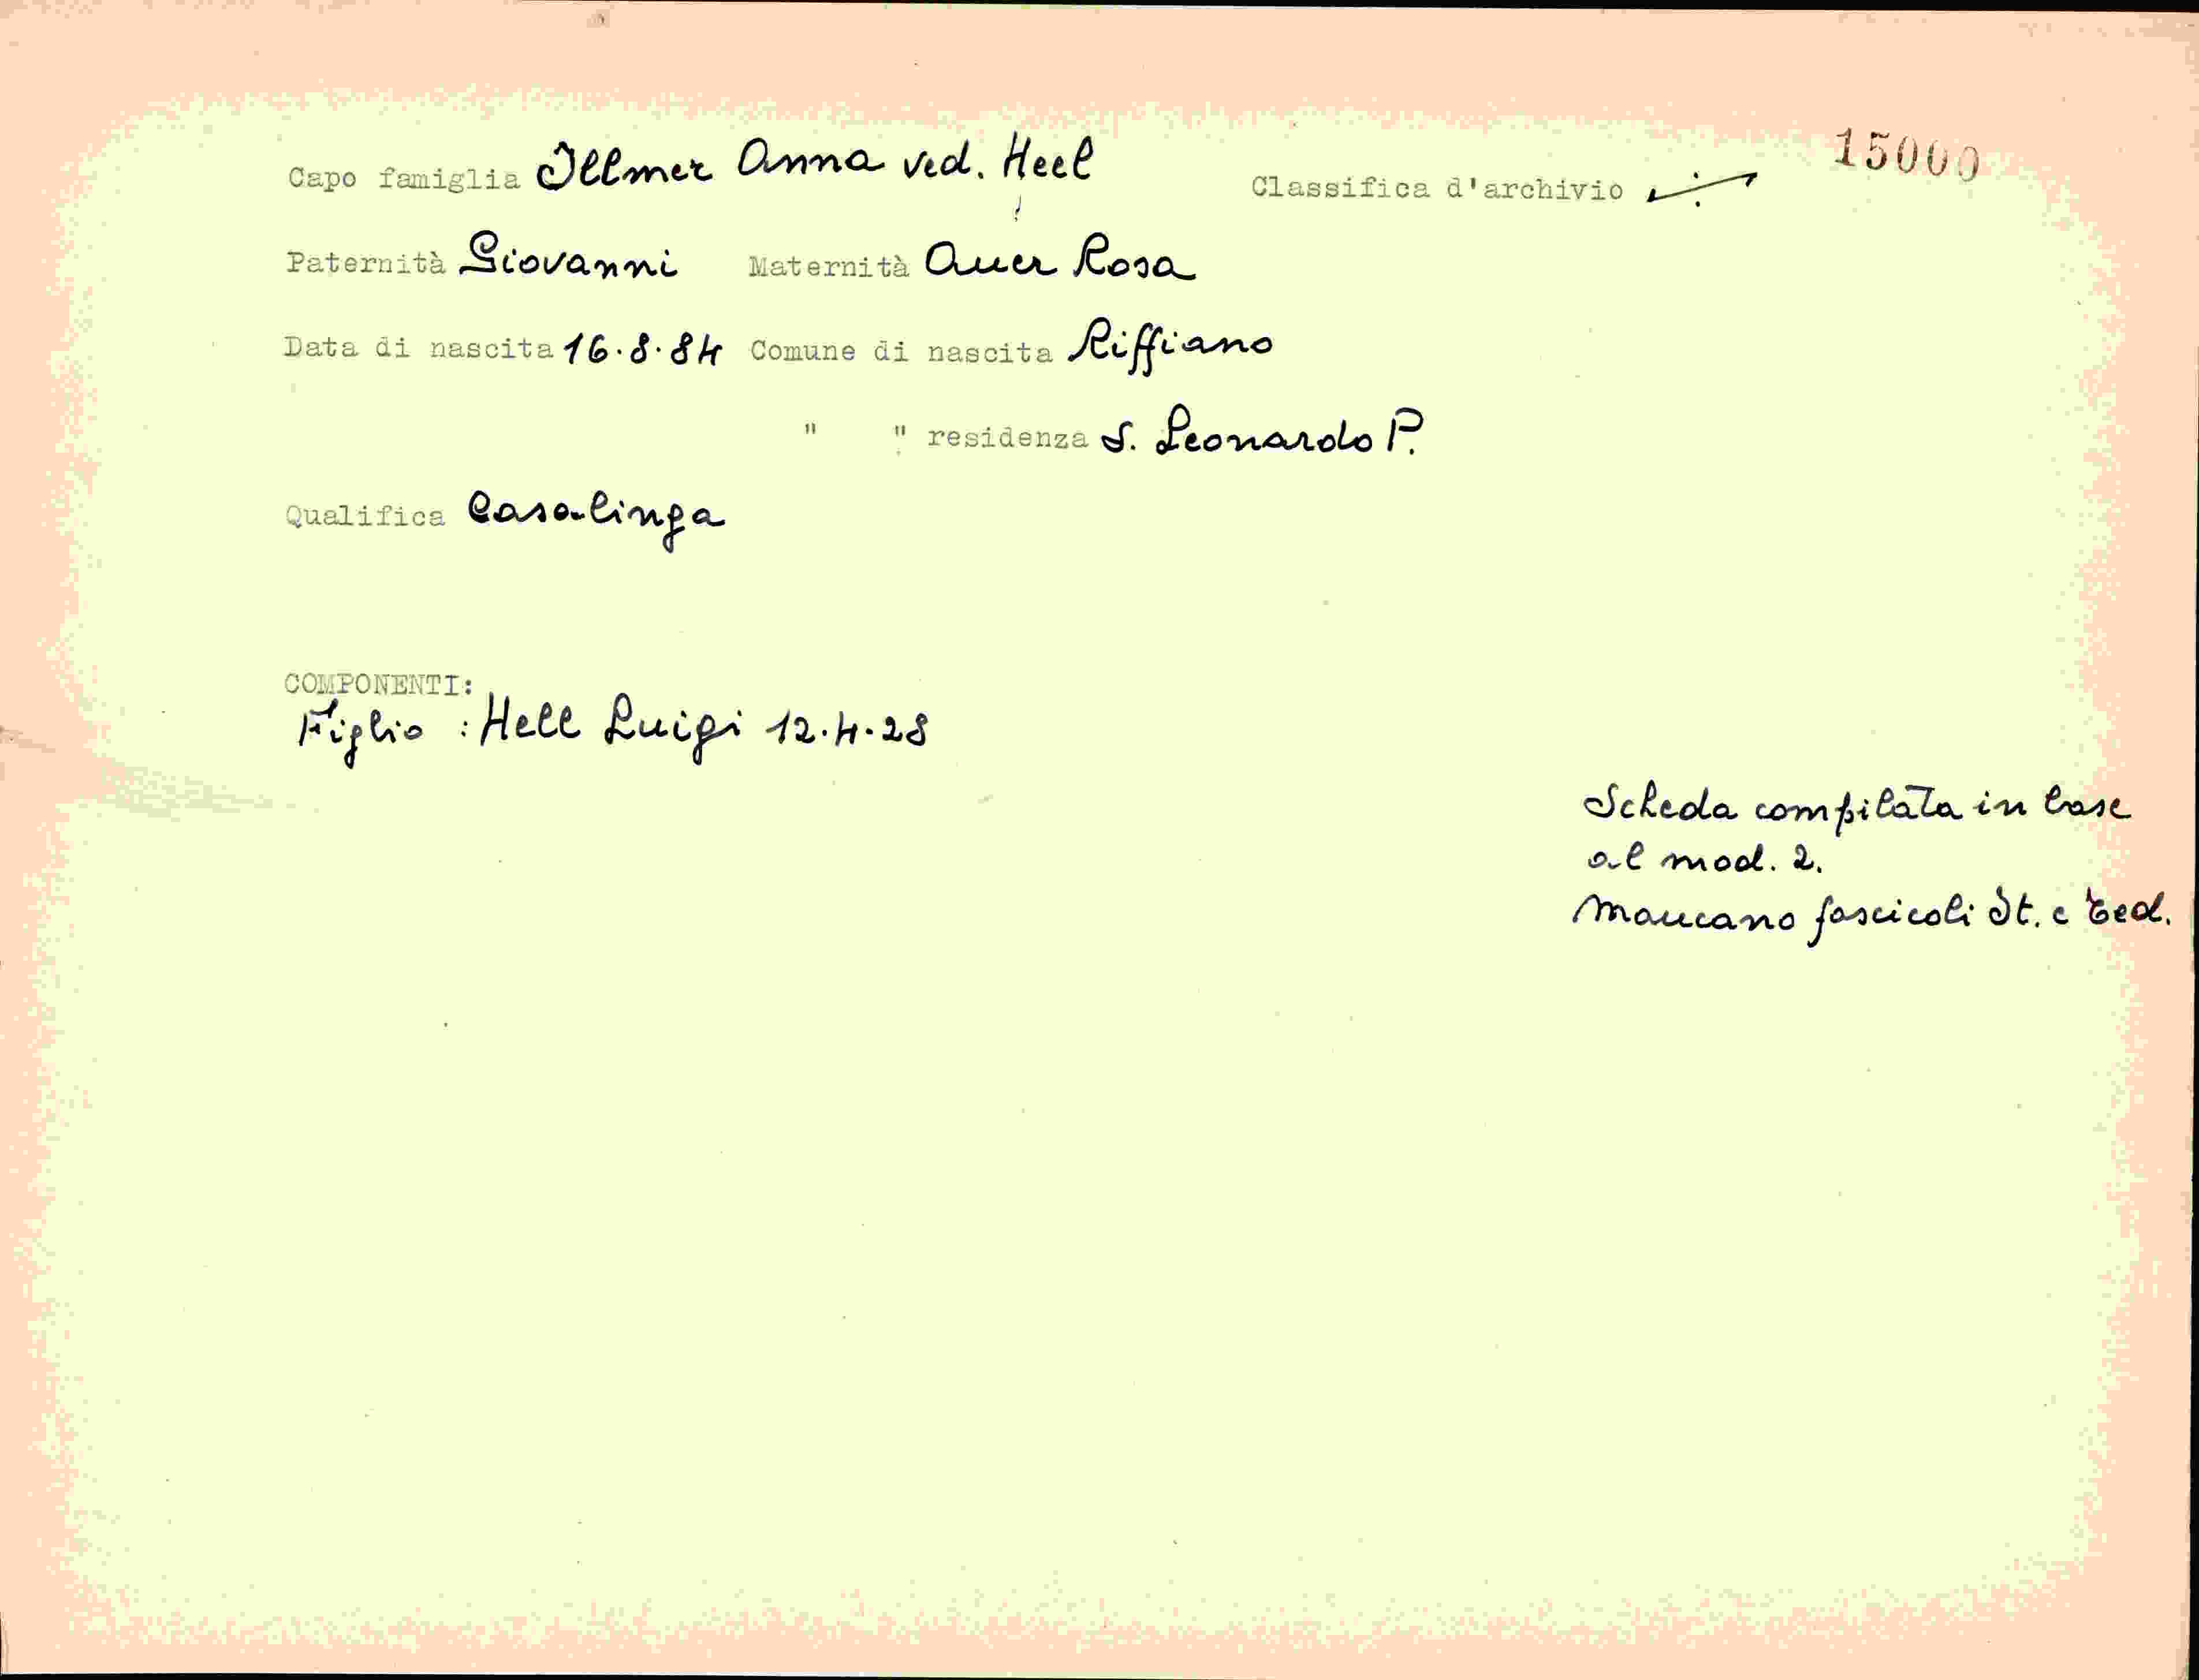 15000
Capo famiglia Illmer Anna ved. Heel Classifica d'archivio
Paternità Giovanni Maternità Auer Rosa
Data di nascita 16.8.84 Comune di nascita Riffiano
" " residenza S. Leonardo P.
Qualifica Casalinga
COMPONENTI:
Figlio : Hell Luigi 12.4.28
Scheda compilata in base
al mod. 2.
Mancano fascicoli It. e Ted.